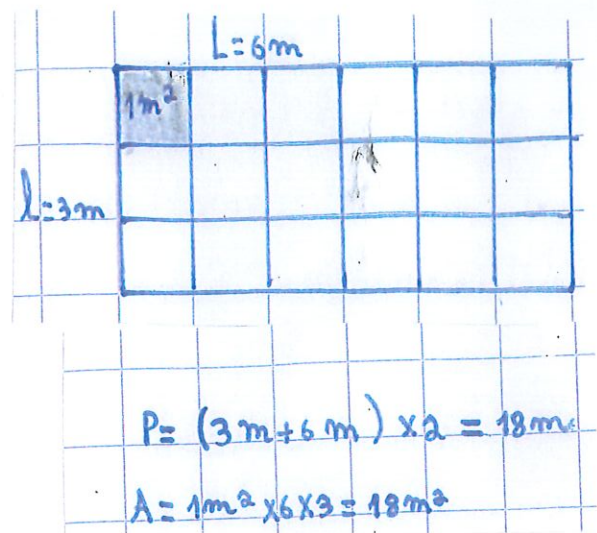 L=6m
1m²
l=3m
P= (3m+6m) x2 = 18m
A= 1m² x6x3= 18m²